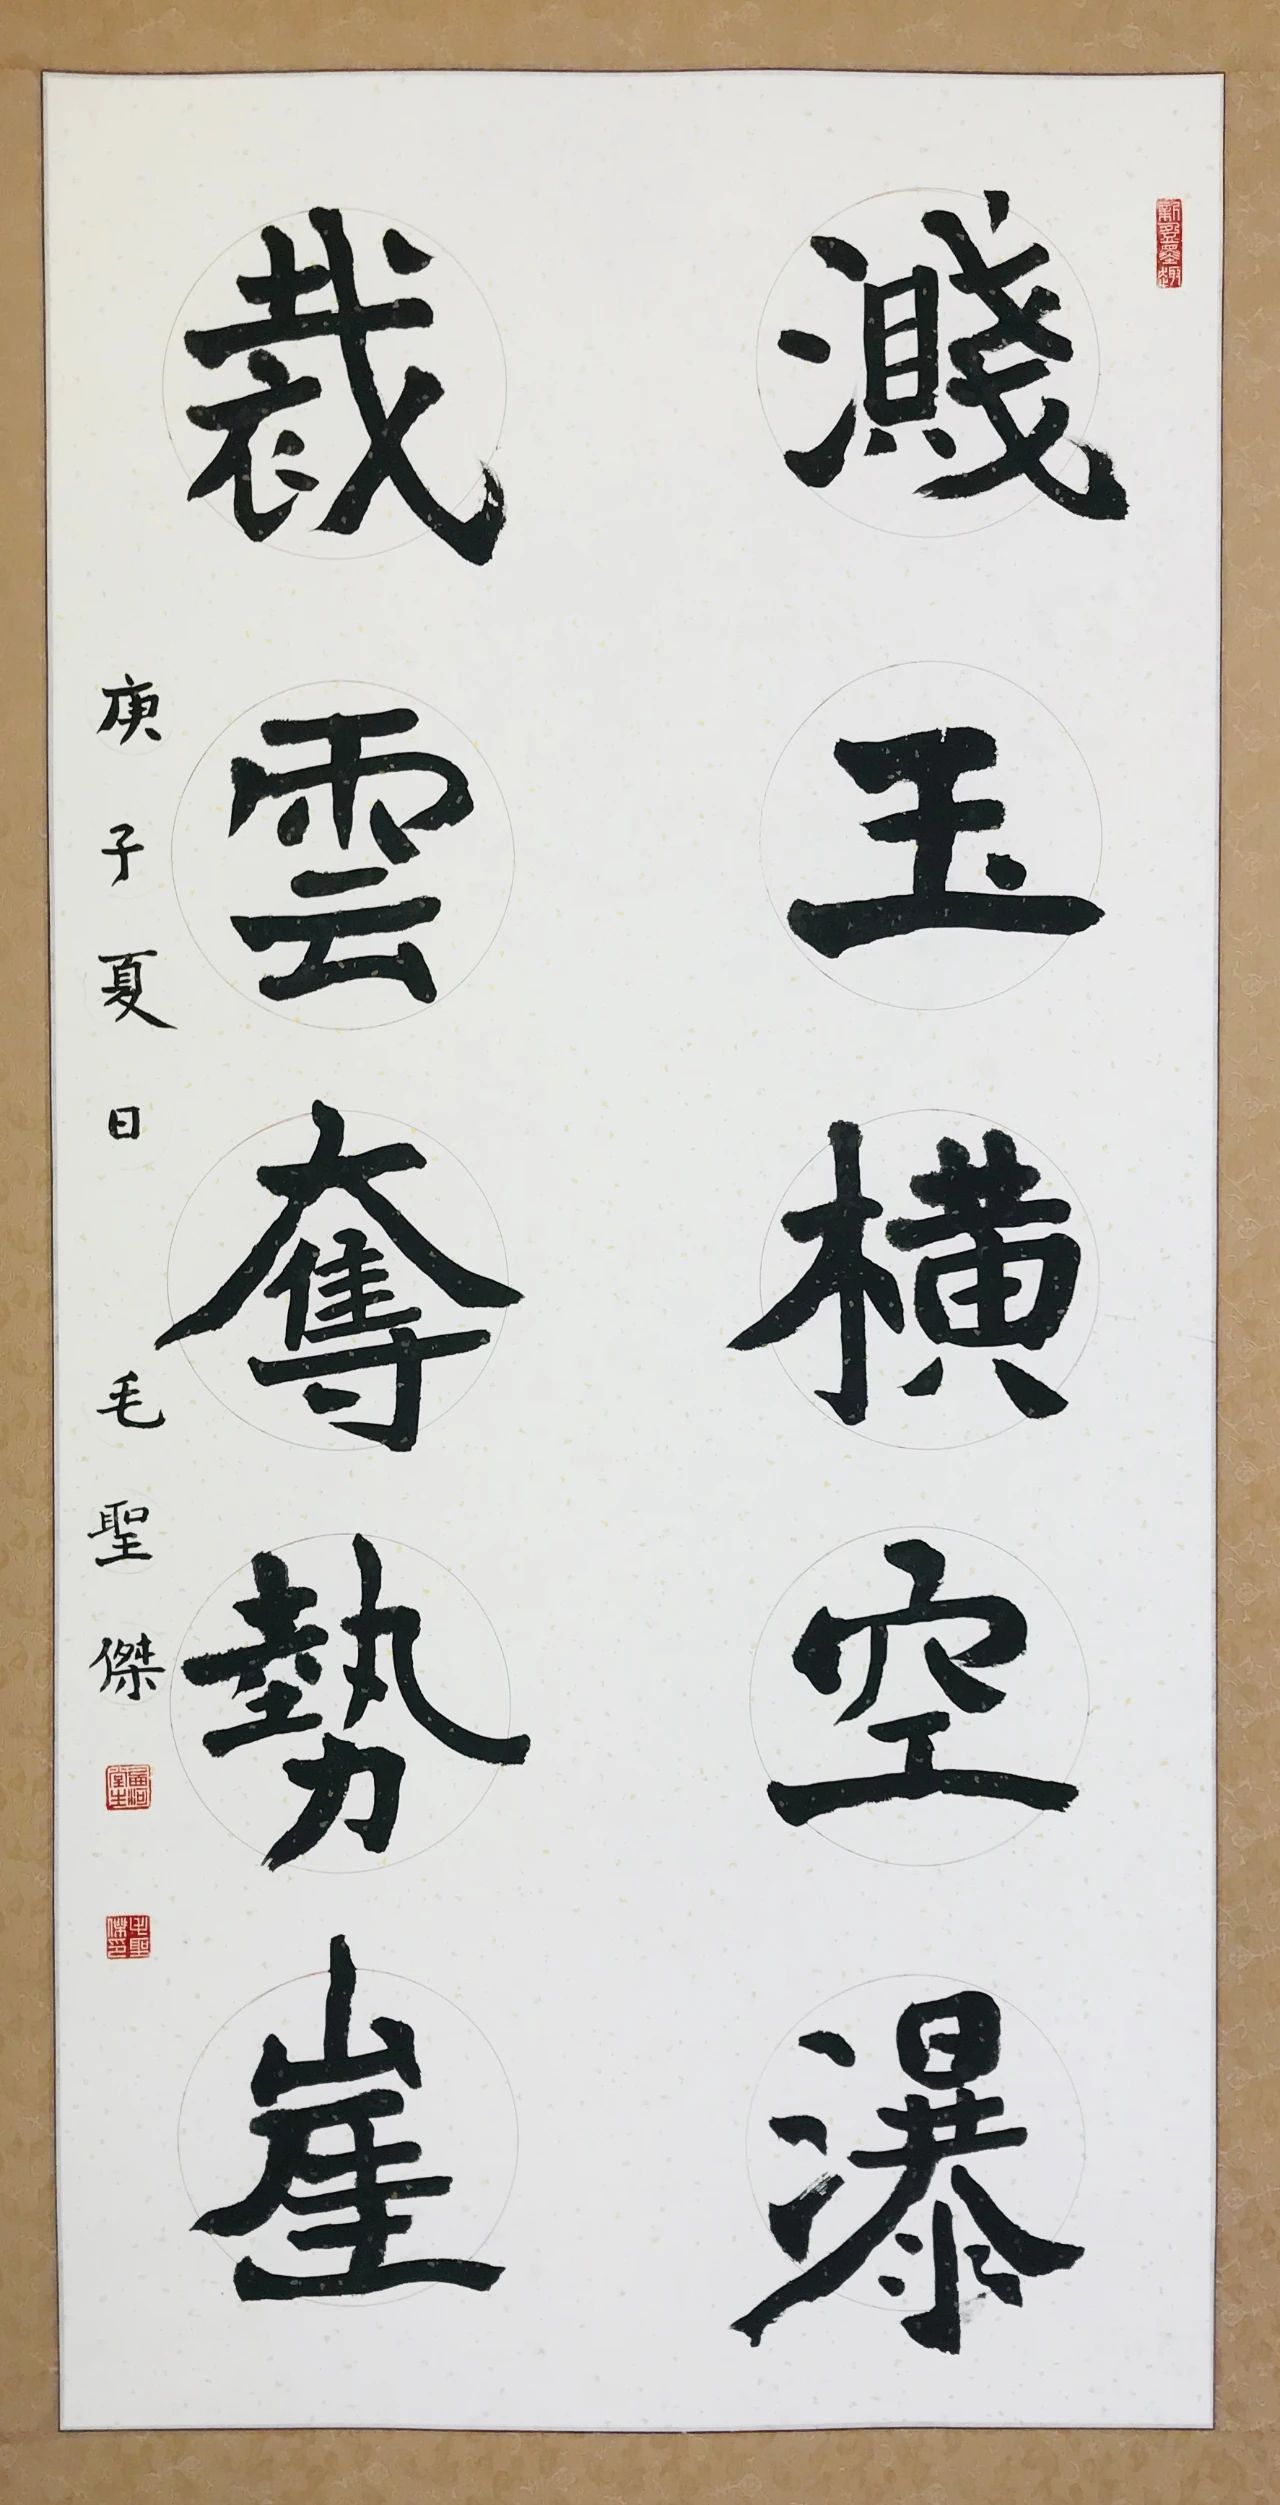 濺玉橫空瀑
裁雲奪勢崖
庚子夏日 毛聖傑
毛聖傑印